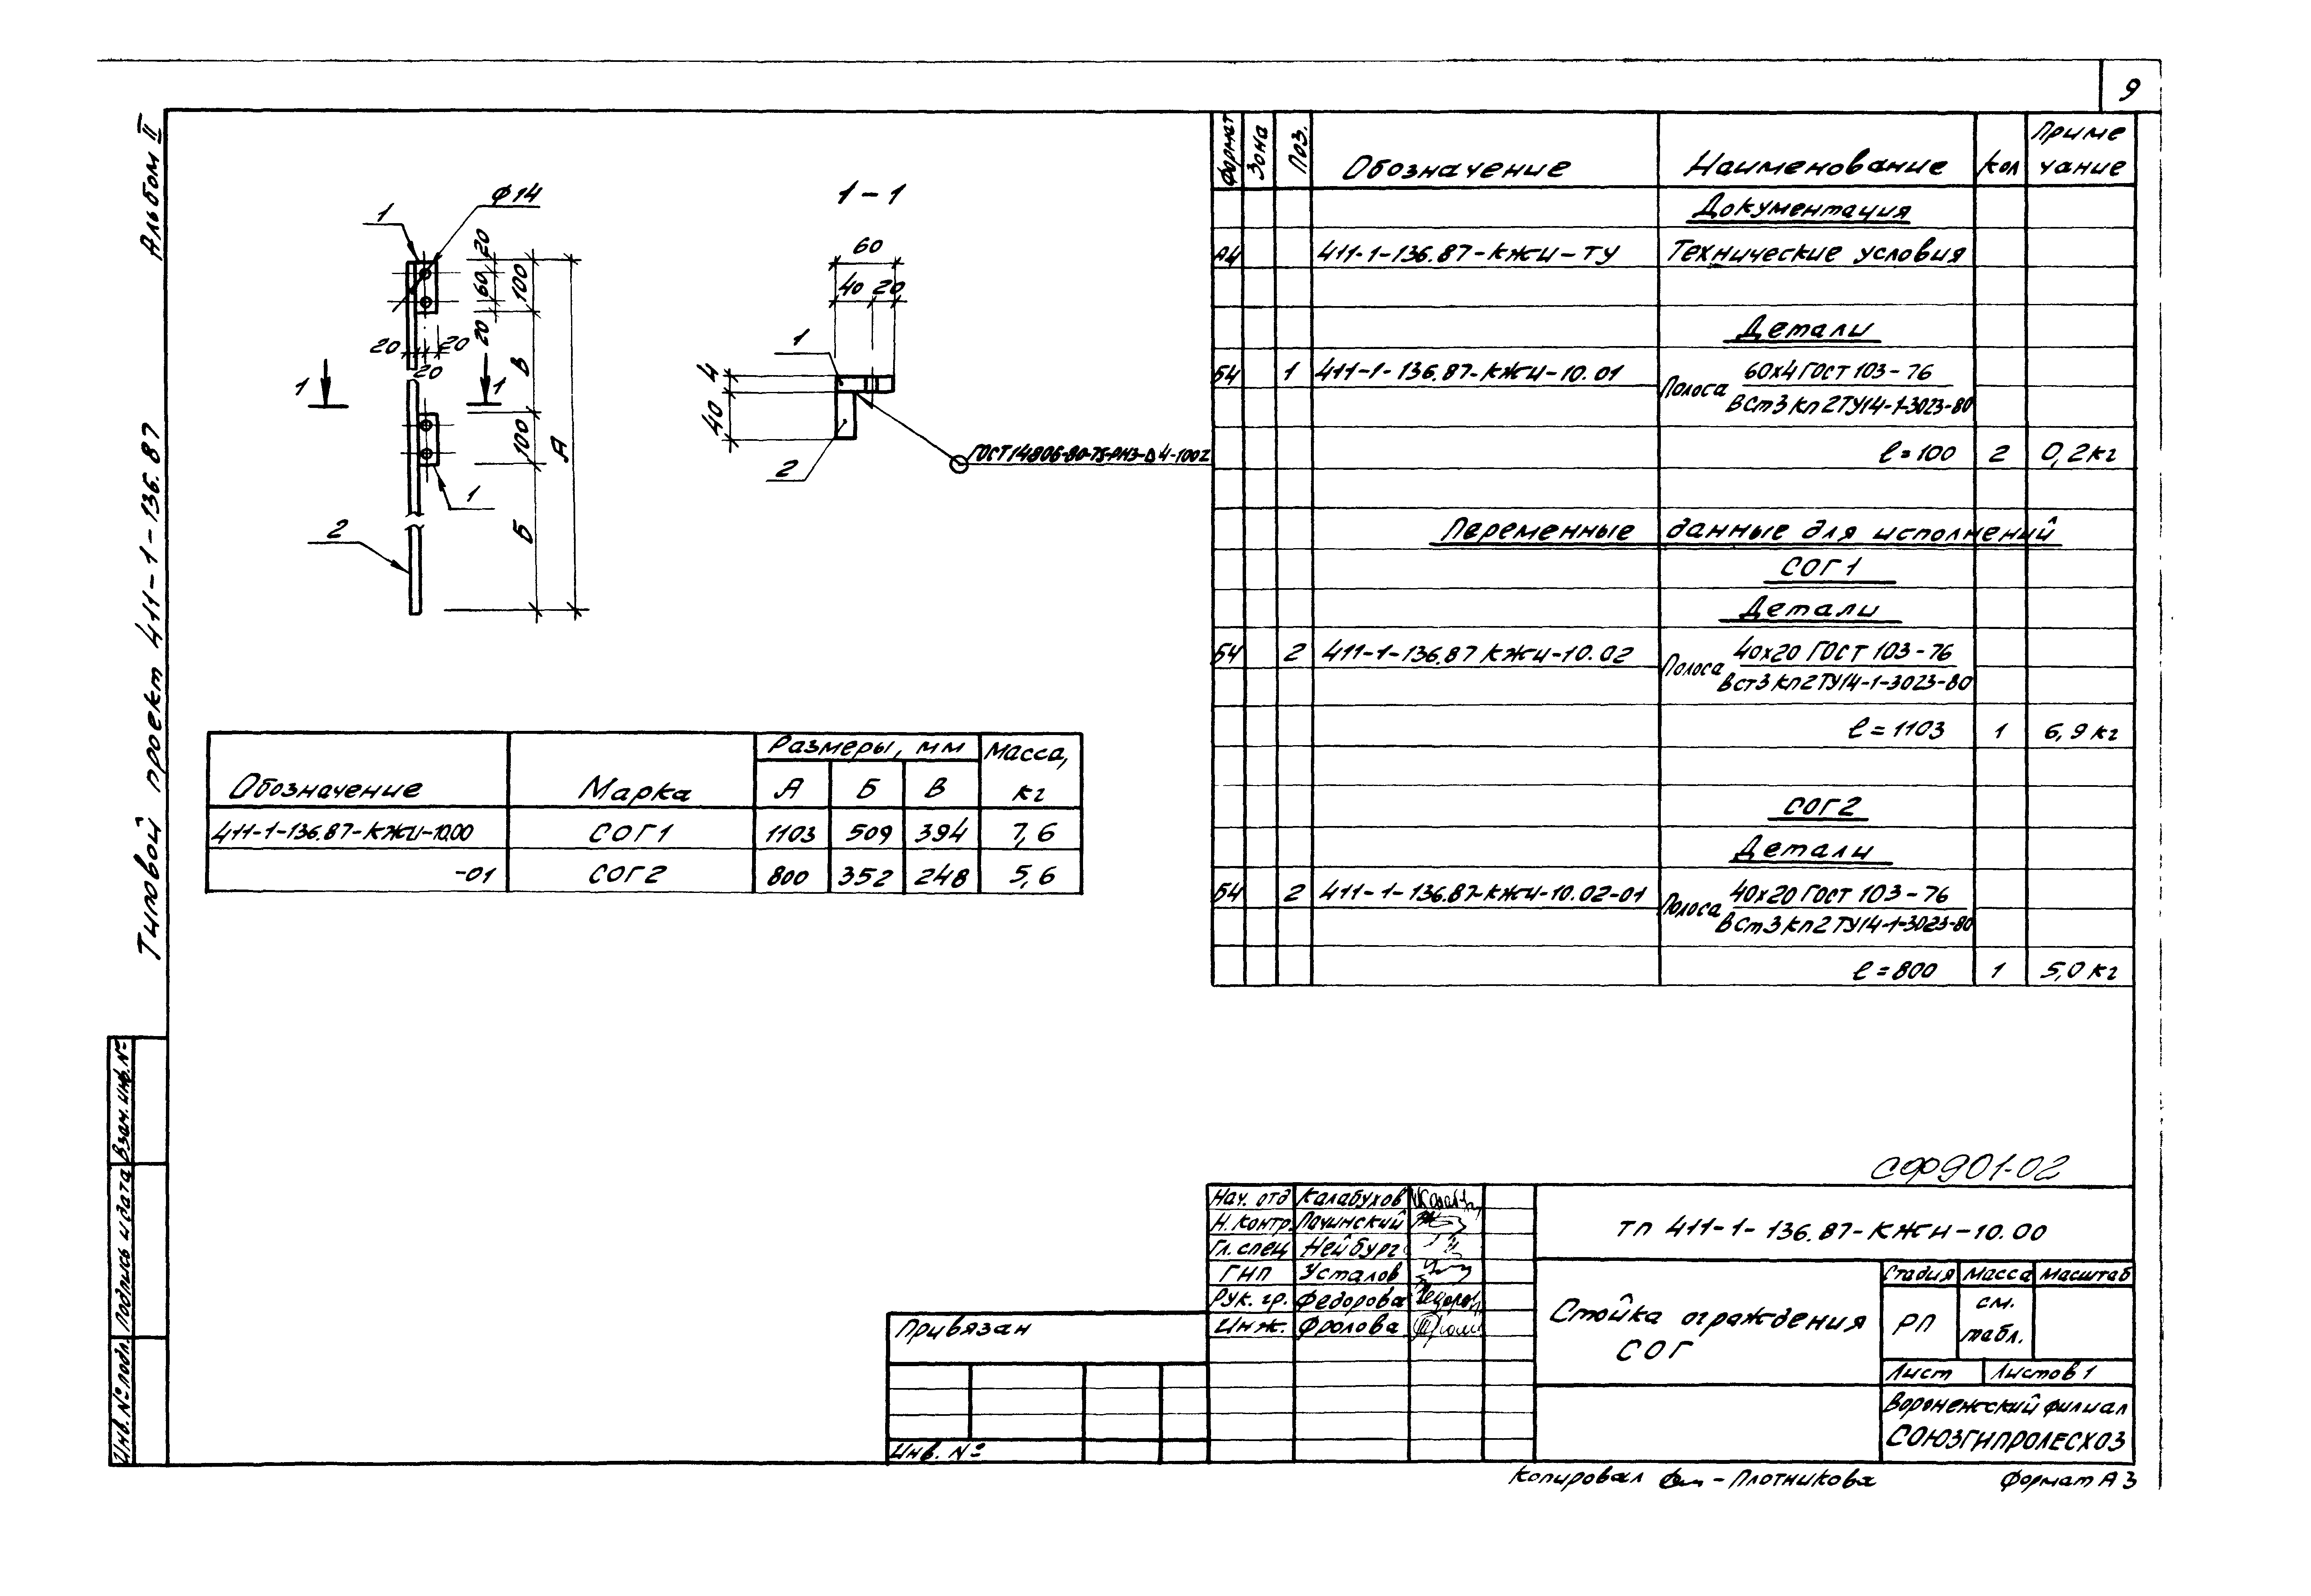 9
Альбом II
Типовой проект 411-1-136.87
1
ϕ14
20
60
100
20
20
20
20
1
1
В
100
А
1
2
Б
1-1
60
40 20
1
4
40
2
Обозначение
Марка
Размеры, мм
Масса, кг
А Б В
411-1-136.87-КЖИ-10.00 СОГ1 1103 509 394 7,6
-01 СОГ2 800 352 248 5,6
Формат Зона Поз. Обозначение Наименование Кол Приме
чание
Документация
А4 411-1-136.87-КЖИ-ТУ Технические условия
Детали
Б4 1 411-1-136.87-КЖИ-10.01 Полоса 60х4 ГОСТ 103-76
ВСт3кп2ТУ14-1-3023-80
ℓ=100 2 0,2кг
Переменные данные для исполнений
СОГ1
Детали
Б4 2 411-1-136.87 КЖИ-10.02 Полоса 40х20 ГОСТ 103-76
ВСт3кп2ТУ14-1-3023-80
ℓ=1103 1 6,9кг
СОГ2
Детали
Б4 2 411-1-136.87-КЖИ-10.02-01 Полоса 40х20 ГОСТ 103-76
ВСт3кп2ТУ14-1-3023-80
ℓ=800 1 5,0кг
СФ901-02
Нач. отд Калабухов
Н. контр. Лачинский
Гл. спец Нейбург
ГИП Усталов
Рук. гр. Федорова
Инж. Фролова
ТП 411-1-136.87-КЖИ-10.00
Стойка ограждения
СОГ
Стадия Масса Масштаб
РП см.
табл.
Лист Листов 1
Воронежский филиал
СОЮЗГИПРОЛЕСХОЗ
Привязан
Инв. №
Взам. инв. №
Подпись и дата
Инв. № подл.
Копировал - Плотникова
Формат А3